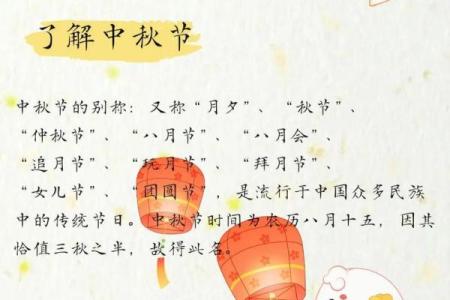 了解中秋节
中秋节的别称：又称“月夕”、“秋节”、
“仲秋节”、“八月节”、“八月会”、
“追月节”、“玩月节”、“拜月节”、
“女儿节”、“团圆节”，是流行于中国众多民族
中的传统节日。中秋节时间为农历八月十五，因其
恰值三秋之半，故得此名。